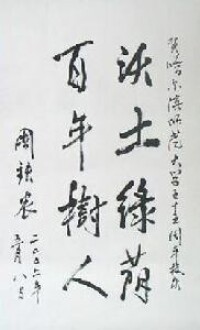 贺哈尔滨师范大学五十五周年校庆
沃土綠荫
百年樹人
周铁农
二〇〇六年
五月八日